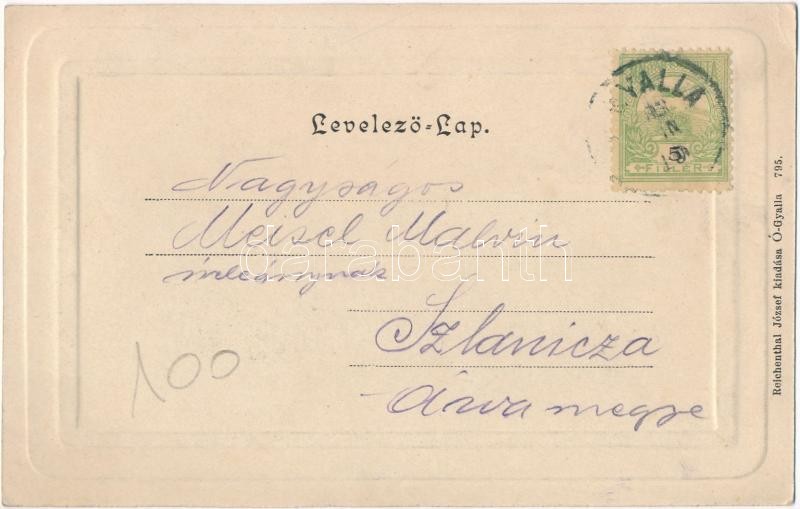 Levelező-Lap.
GYALLA
5
FILLÉR
Nagyságos
Meisel Malvin
úrleánynak
Szlanicza
Árva megye
100
Reichenthal József kiadása Ó-Gyalla 795.
databanth